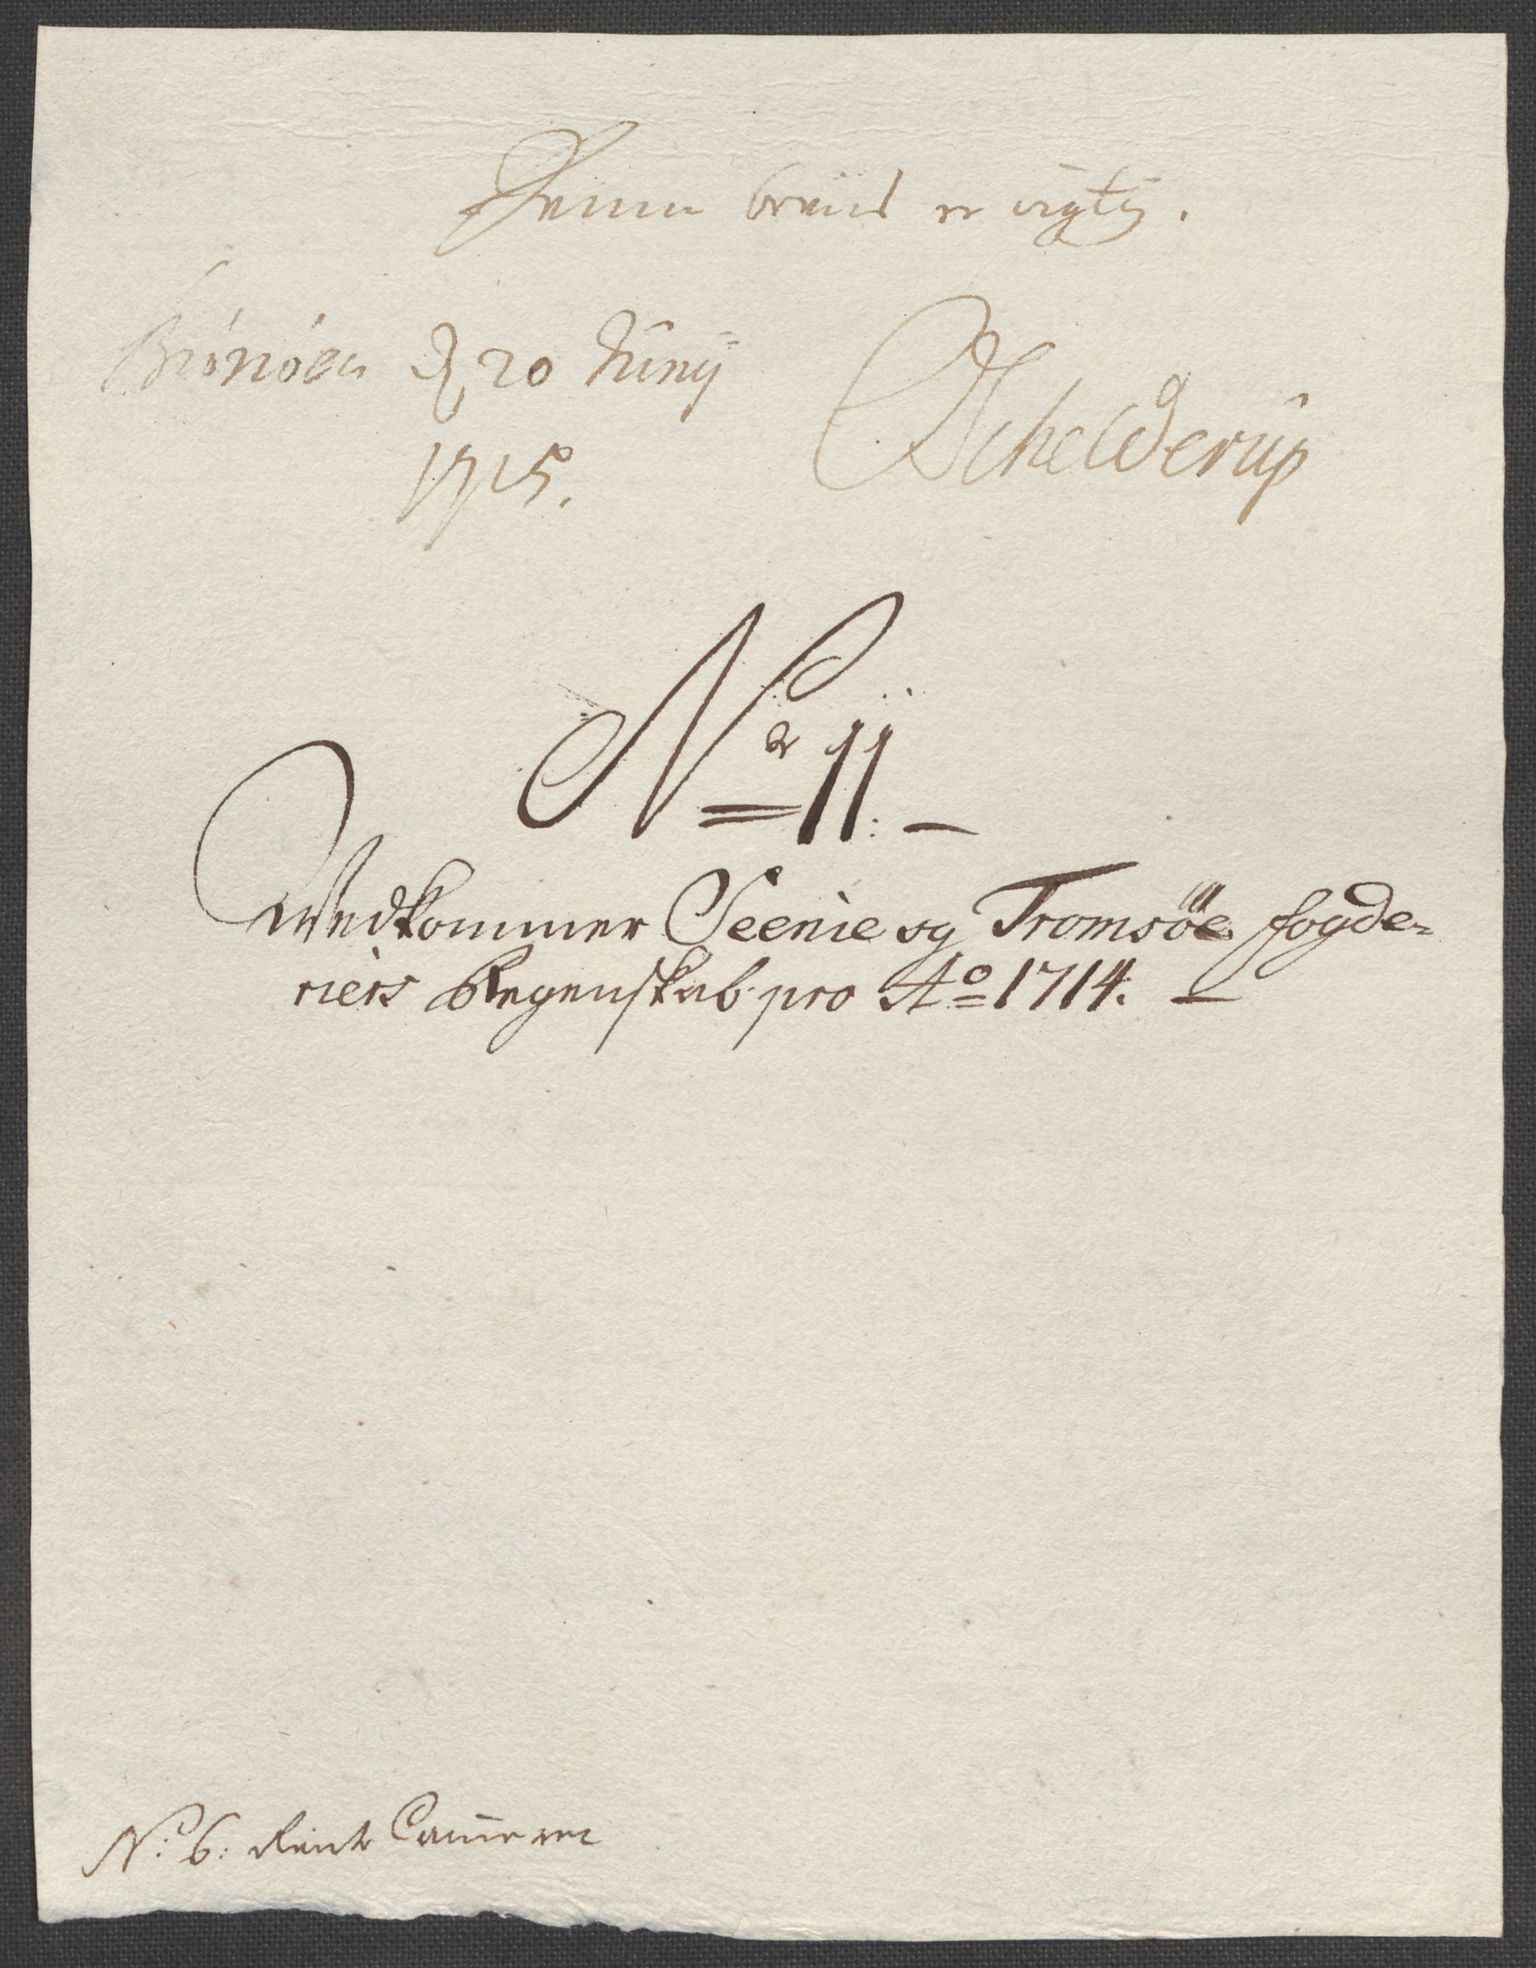 Denne breud er rigtig.
Brönöen d 20 Junij
1715.
Schelderup
No 11.
Wedkommer Seenie og Tromsöe fogde-
riers Regenskab pro Ao 1714.
No: 6: Rente Cammeret